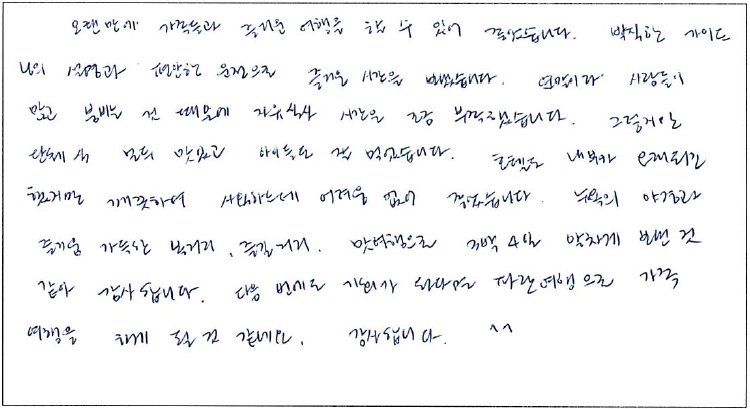 오랜만에 가족들과 즐거운 여행을 할 수 있어 좋았습니다. 박식한 가이드
님의 설명과 편안한 운전으로 즐거운 시간을 보냈습니다. 연말이라 사람들이
많고 붐비는 건 때문에 자유식사 시간은 조금 부족했습니다. 그렇지만
단체식 모두 맛있고 아이들도 잘 먹었습니다. 호텔도 내부가 오래되긴
했지만 깨끗하여 사용하는데 어려움 없어 좋았습니다. 뉴욕의 야경과
즐거움 가득한 볼거리, 즐길거리. 맛여행으로 3박 4일 알차게 보낸 것
같아 감사합니다. 다음 번에도 기회가 된다면 다른 여행으로 가족
여행을 하게 될 것 같네요. 감사합니다. ^^